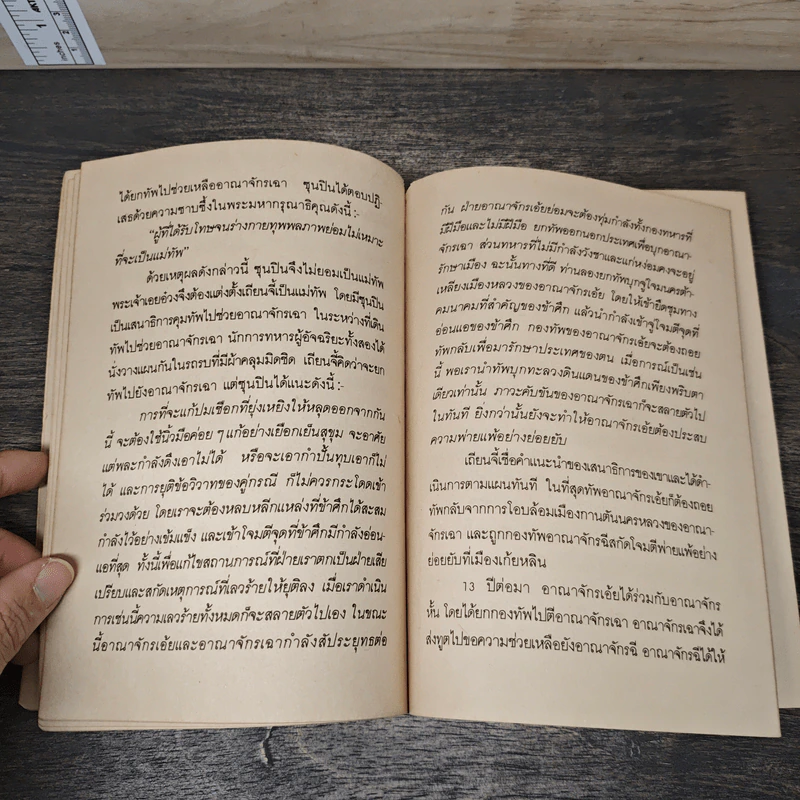 ได้ยกทัพไปช่วยเหลืออาณาจักรเฉา ซุนปินได้ตอบปฏิ-
เสธด้วยความซาบซึ้งในพระมหากรุณาธิคุณดังนี้ :-
"ผู้ที่ได้รับโทษจนร่างกายทุพพลภาพย่อมไม่เหมาะ
ที่จะเป็นแม่ทัพ"
ด้วยเหตุผลดังกล่าวนี้ ซุนปินจึงไม่ยอมเป็นแม่ทัพ
พระเจ้าเอยอ๋วงจึงต้องแต่งตั้งเถียนจี้เป็นแม่ทัพ โดยมีซุนปิน
เป็นเสนาธิการคุมทัพไปช่วยอาณาจักรเฉา ในระหว่างที่เดิน
ทัพไปช่วยอาณาจักรเฉา นักการทหารผู้อัจฉริยะทั้งสองได้
นั่งวางแผนกันในรถรบที่มีผ้าคลุมมิดชิด เถียนจี้คิดว่าจะยก
ทัพไปยังอาณาจักรเฉา แต่ซุนปินได้แนะดังนี้ :-
การที่จะแก้ปมเชือกที่ยุ่งเหยิงให้หลุดออกจากกัน
นี้ จะต้องใช้นิ้วมือค่อย ๆ แก้อย่างเยือกเย็นสุขุม จะอาศัย
แต่พละกำลังดึงเอาไม่ได้ หรือจะเอากำปั้นทุบเอาก็ไม่
ได้ และการยุติข้อวิวาทของคู่กรณี ก็ไม่ควรกระโดดเข้า
ร่วมวงด้วย โดยเราจะต้องหลบหลีกแหล่งที่ข้าศึกได้สะสม
กำลังไว้อย่างเข้มแข็ง และเข้าโจมตีจุดที่ข้าศึกมีกำลังอ่อน-
แอที่สุด ทั้งนี้เพื่อแก้ไขสถานการณ์ที่ฝ่ายเราตกเป็นฝ่ายเสีย
เปรียบและสกัดเหตุการณ์ที่เลวร้ายให้ยุติลง เมื่อเราดำเนิน
การเช่นนี้ความเลวร้ายทั้งหมดก็จะสลายตัวไปเอง ในขณะ
นี้อาณาจักรเอ้ยและอาณาจักรเฉากำลังสัประยุทธต่อ
กัน ฝ่ายอาณาจักรเอ้ยย่อมจะต้องทุ่มกำลังทั้งกองทหารที่
มีฝีมือและไม่มีฝีมือ ยกทัพออกนอกประเทศเพื่อบุกอาณา-
จักรเฉา ส่วนทหารที่ไม่มีกำลังวังชาและแก่หง่อมคงจะอยู่
รักษาเมือง ฉะนั้นทางที่ดี ท่านลองยกทัพบุกจู่โจมนครต้า-
เหลียงเมืองหลวงของอาณาจักรเอ้ย โดยให้เข้ายึดชุมทาง
คมนาคมที่สำคัญของข้าศึก แล้วนำกำลังเข้าจู่โจมตีจุดที่
อ่อนแอของข้าศึก กองทัพของอาณาจักรเอ้ยจะต้องถอย
ทัพกลับเพื่อมารักษาประเทศของตน เมื่อการณ์เป็นเช่น
นี้ พอเรานำทัพบุกทะลวงดินแดนของข้าศึกเพียงพริบตา
เดียวเท่านั้น ภาวะคับขันของอาณาจักรเฉาก็จะสลายตัวไป
ในทันที ยิ่งกว่านั้นยังจะทำให้อาณาจักรเอ้ยต้องประสบ
ความพ่ายแพ้อย่างย่อยยับ
เถียนจี้เชื่อคำแนะนำของเสนาธิการของเขาและได้ดำ-
เนินการตามแผนทันที ในที่สุดทัพอาณาจักรเอ้ยก็ต้องถอย
ทัพกลับจากการโอบล้อมเมืองกานตันนครหลวงของอาณา-
จักรเฉา และถูกกองทัพอาณาจักรฉีสกัดโจมตีพ่ายแพ้อย่าง
ย่อยยับที่เมืองเก้ยหลิน
13 ปีต่อมา อาณาจักรเอ้ยได้ร่วมกับอาณาจักร
หั้น โดยได้ยกกองทัพไปตีอาณาจักรเฉา อาณาจักรเฉาจึงได้
ส่งทูตไปขอความช่วยเหลือยังอาณาจักรฉี อาณาจักรฉีได้ให้